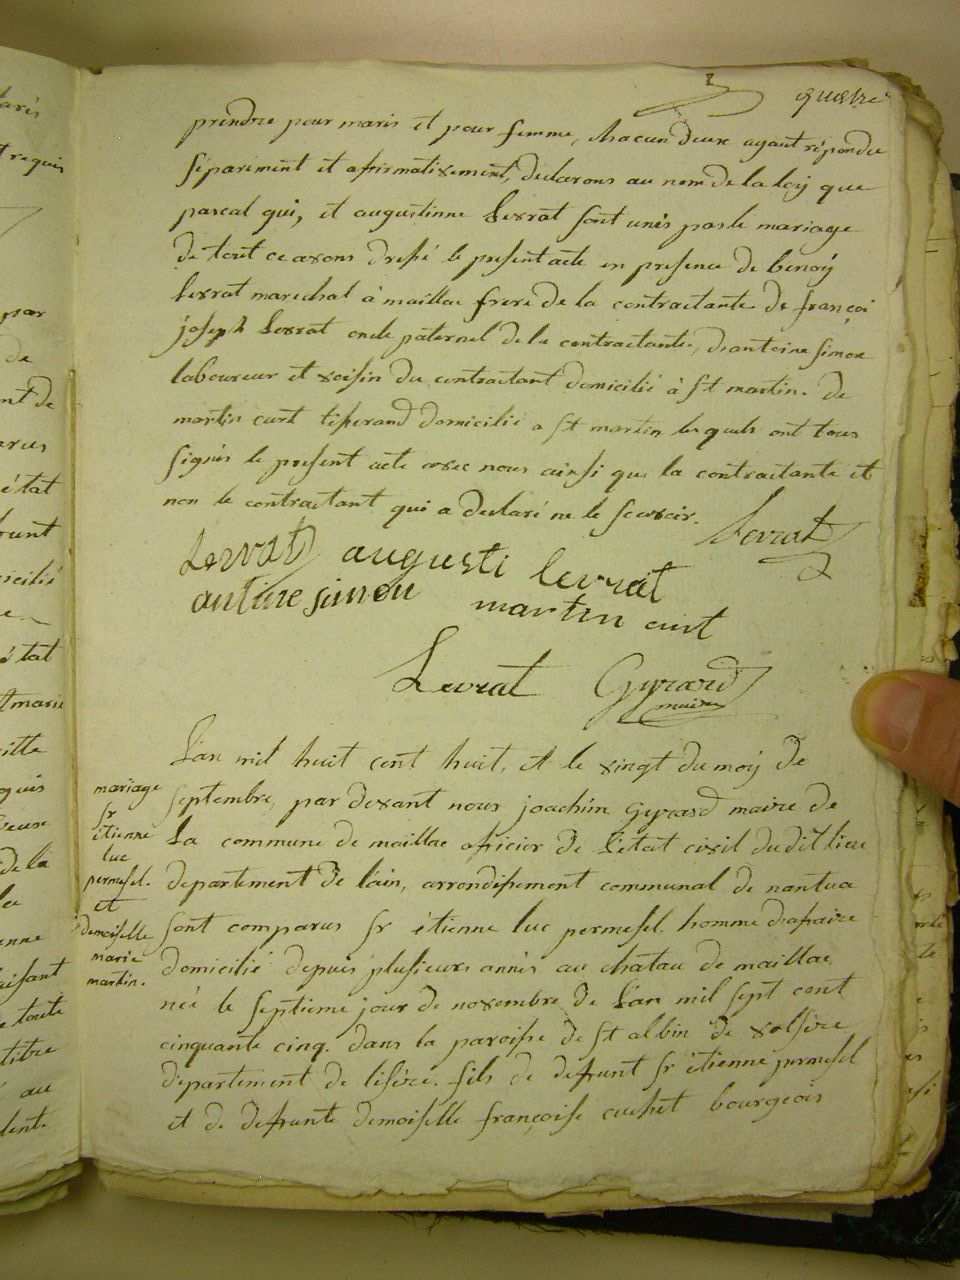 quatre
prendre pour maris et pour femme, chacun deux ayant répondu
séparément et afirmativement, declarons au nom de la loy que
pascal gui, et augustinne Levrat sont unis par le mariage
de tout ce avons dressé le present acte en presence de benoy
Levrat marechal à maillac frere de la contractante de françoi
joseph Levrat oncle paternel de la contractante, d'antoine simon
laboureur et voisin du contractant domicilié à st martin. de
martin curt tisserand domicilié a st martin lesquels ont tous
signés le present acte avec nous ainsi que la contractante et
non le contractant qui a declaré ne le scavoir. Levrat
Levrat augusti levrat
antine simon martin curt
Levrat Gyrard
maire
L'an mil huit cent huit, et le vingt du moy de
septembre, par devant nous joachim Gyrard maire de
La commune de maillac oficier de L'etat civil du dit lieu
departement de l'ain, arrondissement communal de nantua
sont comparus sr étienne luc permesel homme d'afaire
domicilié depuis plusieurs annés au chatau de maillac
née le septieme jour de novembre de L'an mil sept cent
cinquante cinq. dans la paroisse de st albin de volsère
departement de lisère. fils de defunt sr étienne permesel
et de defunte demoiselle françoise cuchet bourgeois
mariage
sr
étienne
luc
permesel.
et
demoiselle
marie
martin.